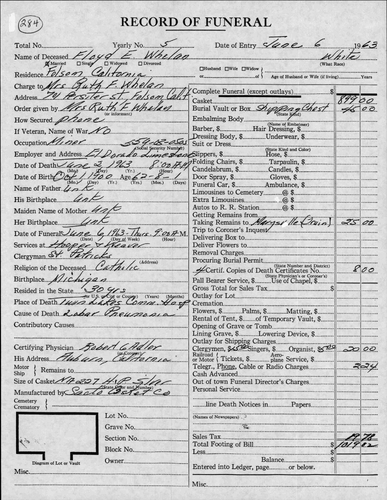 284
RECORD OF FUNERAL
Total No. Yearly No. 5 Date of Entry June 6 1963
Name of Deceased Floyd E Whelan White
Married Single Widowed Divorced (What Race)
Residence Folsom California Husband Wife Widow of Age of Husband or Wife (if living) Years
Charge to Mrs Ruth F Whelan
Address St Folsom Calif
Order given by Mrs Ruth F Whelan
How Secured phone
If Veteran, Name of War No
Occupation Miner
Employer and Address El Dorado
Date of Death June 3, 1963
Date of Birth Oct 1 1900 Age 62-8-1
Name of Father Unk
His Birthplace Unk
Maiden Name of Mother Unk
Her Birthplace Unk
Date of Funeral June 6 1963 Thurs
Services at
Clergyman St Patricks
Religion of the Deceased Catholic
Birthplace Michigan
Resided in the State 30 yrs
Place of Death Twin Lakes Conv. Hosp
Cause of Death Lobar Pneumonia
Contributory Causes
Certifying Physician Robert G
His Address Auburn, California
Motor Ship Remains to
Size of Casket
Manufactured by Sacto Casket Co
Cemetery Crematory
Lot No.
Grave No.
Section No.
Block No.
Owner
Diagram of Lot or Vault
Misc.
Complete Funeral (except outlays) $
Casket 899.00
Burial Vault or Box Shipping Chest 45.00
(State Kind)
Embalming Body
(Name of Embalmer)
Barber, $ Hair Dressing, $
Dressing Body, $ Underwear, $
Suit or Dress
(State Kind and Color)
Slippers, $ Hose, $
Folding Chairs, $ Tarpaulin, $
Candelabrum, $ Candles, $
Door Spray, $ Gloves, $
Funeral Car, $ Ambulance, $
Limousines to Cemetery @ $
Extra Limousines @ $
Autos to R. R. Station @ $
Getting Remains from
Taking Remains to 25.00
Trip to Coroner's Inquest
Delivering Box to
Deliver Flowers to
Removal Charges
Procuring Burial Permit
4 Certif. Copies of Death Certificates No. 8.00
Pall Bearer Service, $ Use of Chapel, $
Gross Total for Sales Tax $
Outlay for Lot
Cremation
Flowers, $ Palms, $ Matting, $
Rental of Tent, $ of Temporary Vault, $
Opening of Grave or Tomb
Lining Grave, $ Lowering Device, $
Outlay for Shipping Charges
Clergyman, $ Singers, $ Organist, $ 20.00
Railroad or Motor Tickets, $ Aeroplane Service, $
Telegr., Phone, Cable or Radio Charges 2.04
Cash Advanced
Out of town Funeral Director's Charges
Personal Service
line Death Notices in Papers
(Names of Newspapers)
Sales Tax $
Total Footing of Bill $
Less $
Balance $
Entered into Ledger, page or below.
Misc.